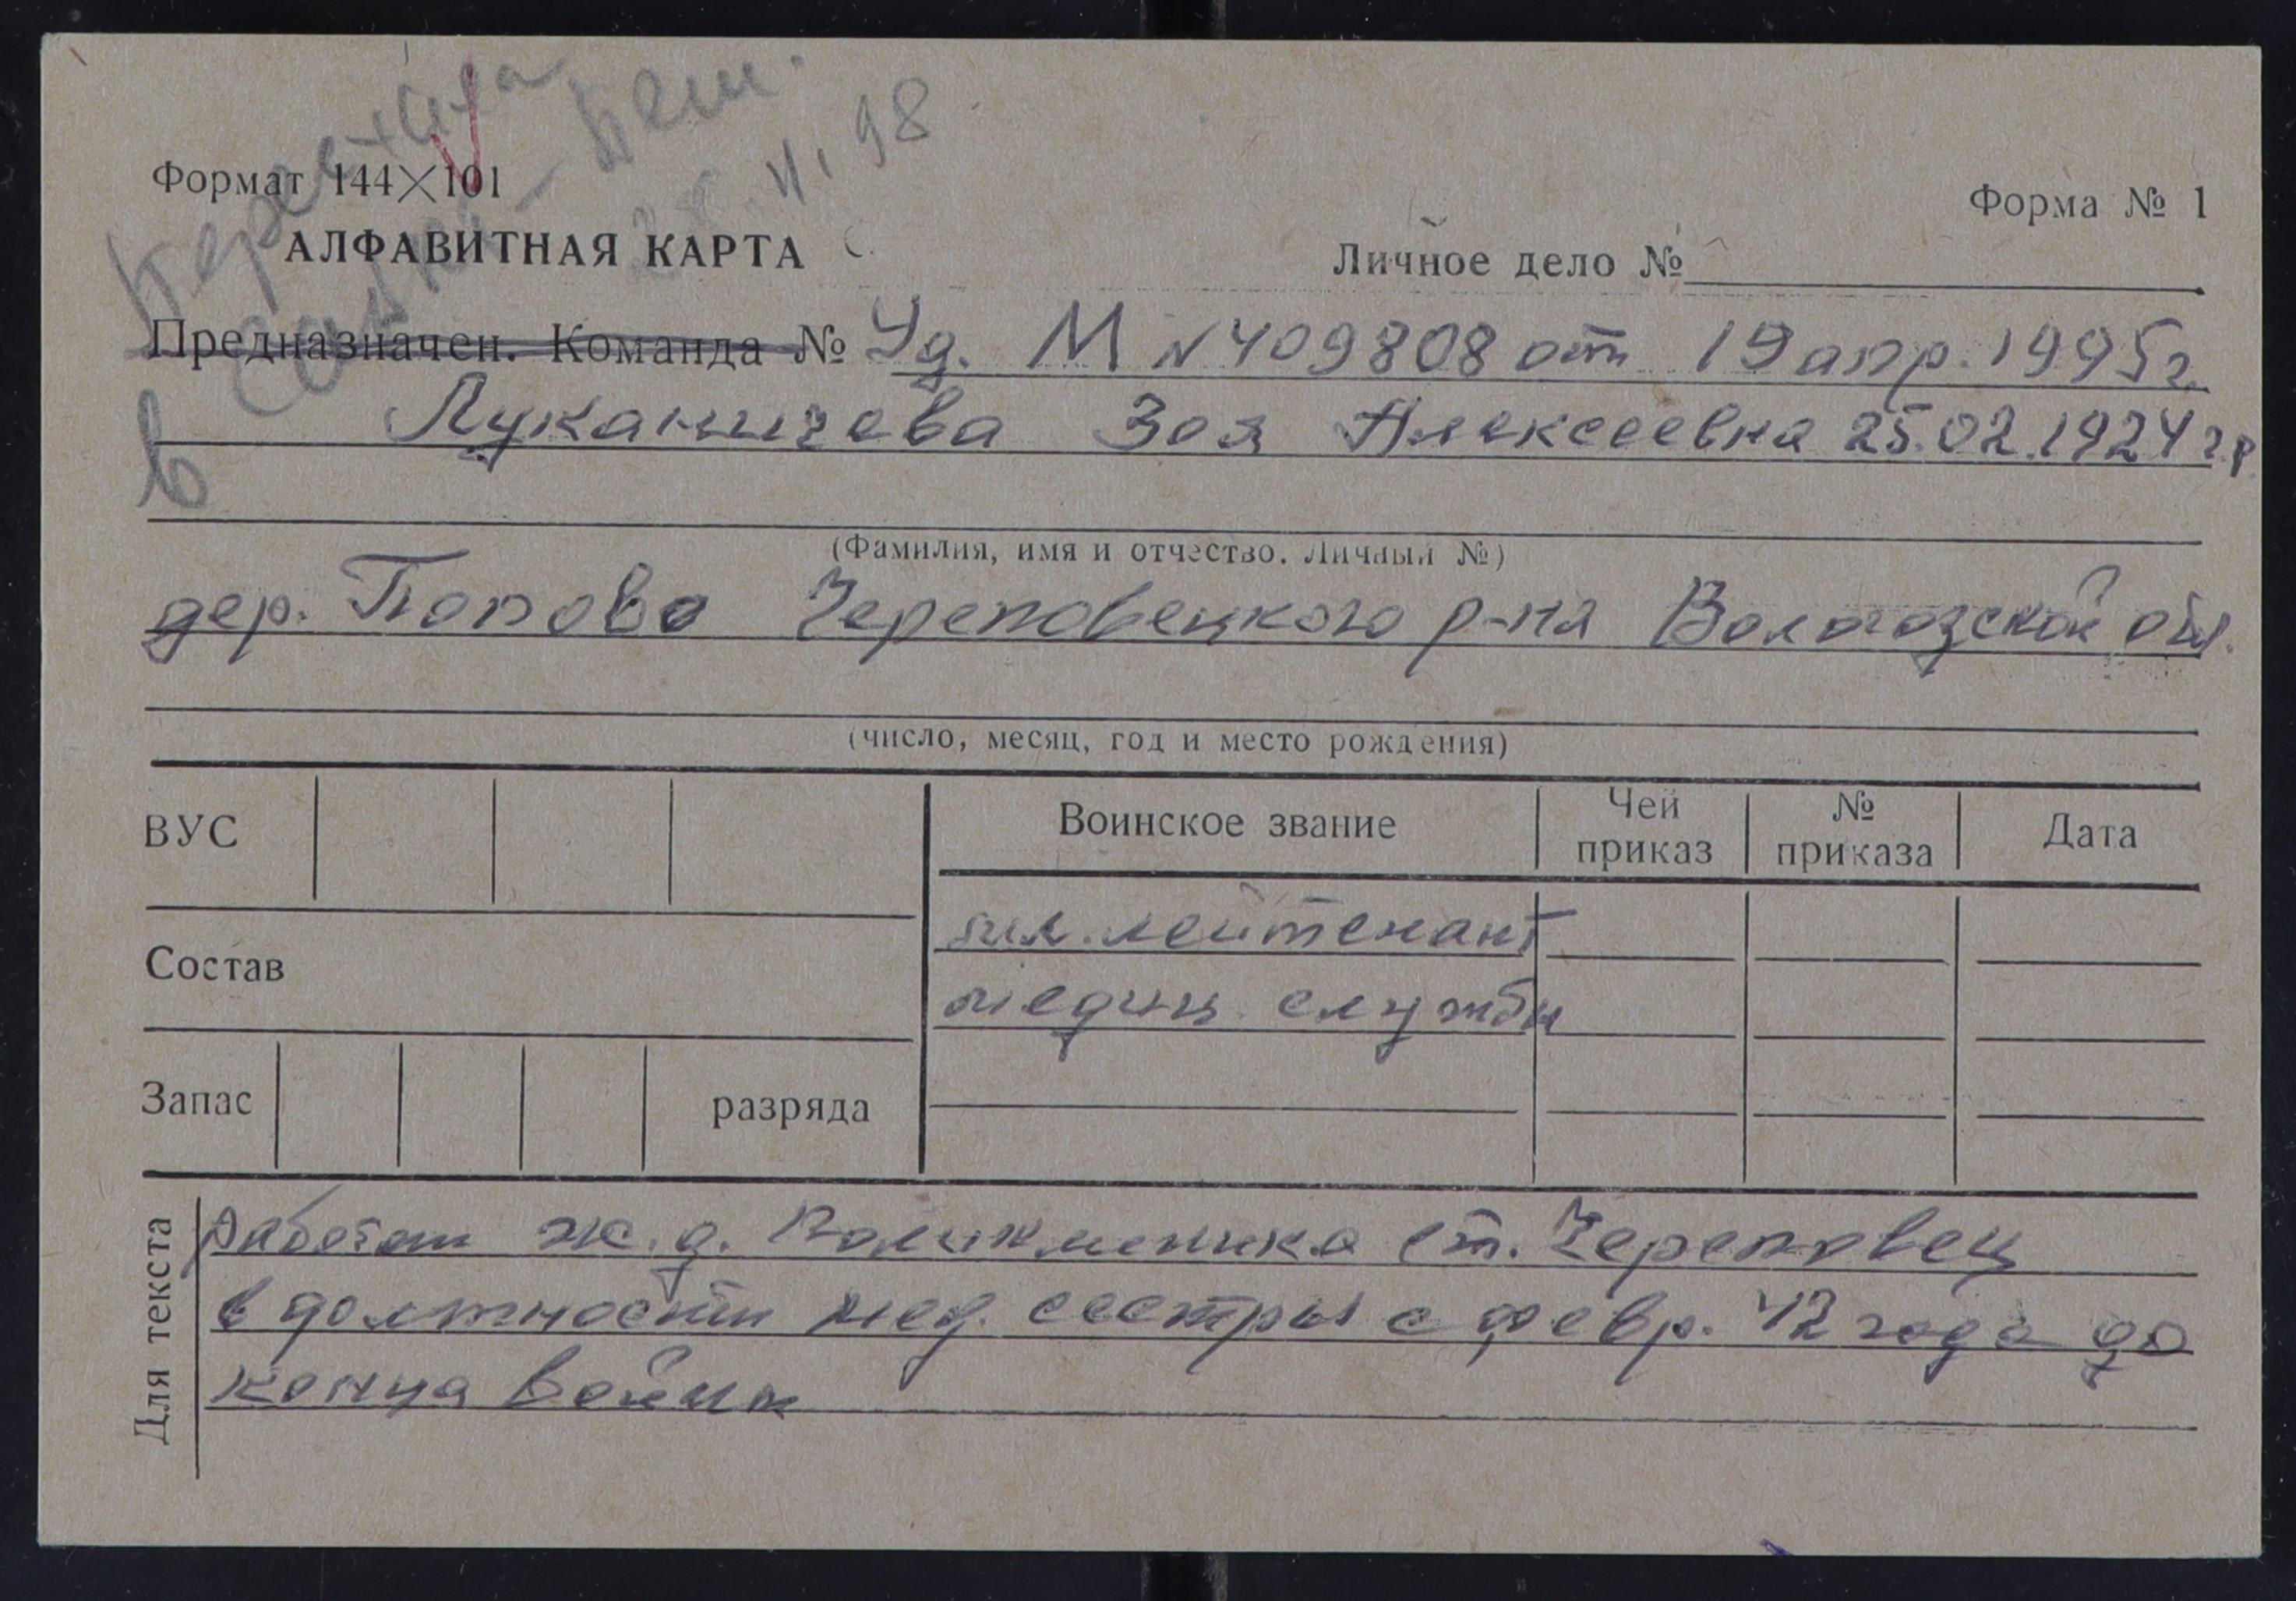 Переехала
в Санкт-Пет.
4. 98
Формат 144×101
Форма № 1
АЛФАВИТНАЯ КАРТА
Личное дело №
Предназначен. Команда № Уд. М № 409808 от 19 апр. 1995 г.
Луканичева Зоя Алексеевна 25.02.1924 г.р.
(Фамилия, имя и отчество. Личный №)
дер. Попово Череповецкого р-на Вологодской обл.
(число, месяц, год и место рождения)
ВУС
Воинское звание
Чей приказ
№ приказа
Дата
мл. лейтенант
Состав
медиц. службы
Запас
разряда
Для текста
Работат ж.д. Поликлиника ст. Череповец
в должности мед. сестры с февр. 42 года до
конца войны